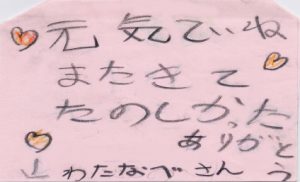 元気でいね
またきて
たのしかった
ありがとう
↓わたなべさん